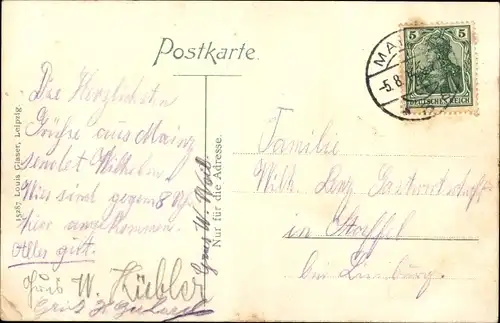 Postkarte.
Die Herzlichsten
Grüße aus Mainz
sendet Wilhelm.
Wir sind gegen 8 Uhr
hier angekommen.
Alles gut.
Gruß W. Kübler
Gruß
Gruß W.
Nur für die Adresse.
15287 Louis Glaser, Leipzig.
MAI
-5.8.
5 5
DEUTSCHES REICH
Familie
Wilh. Lenz Gastwirtschaft
in Staffel
bei Limburg.